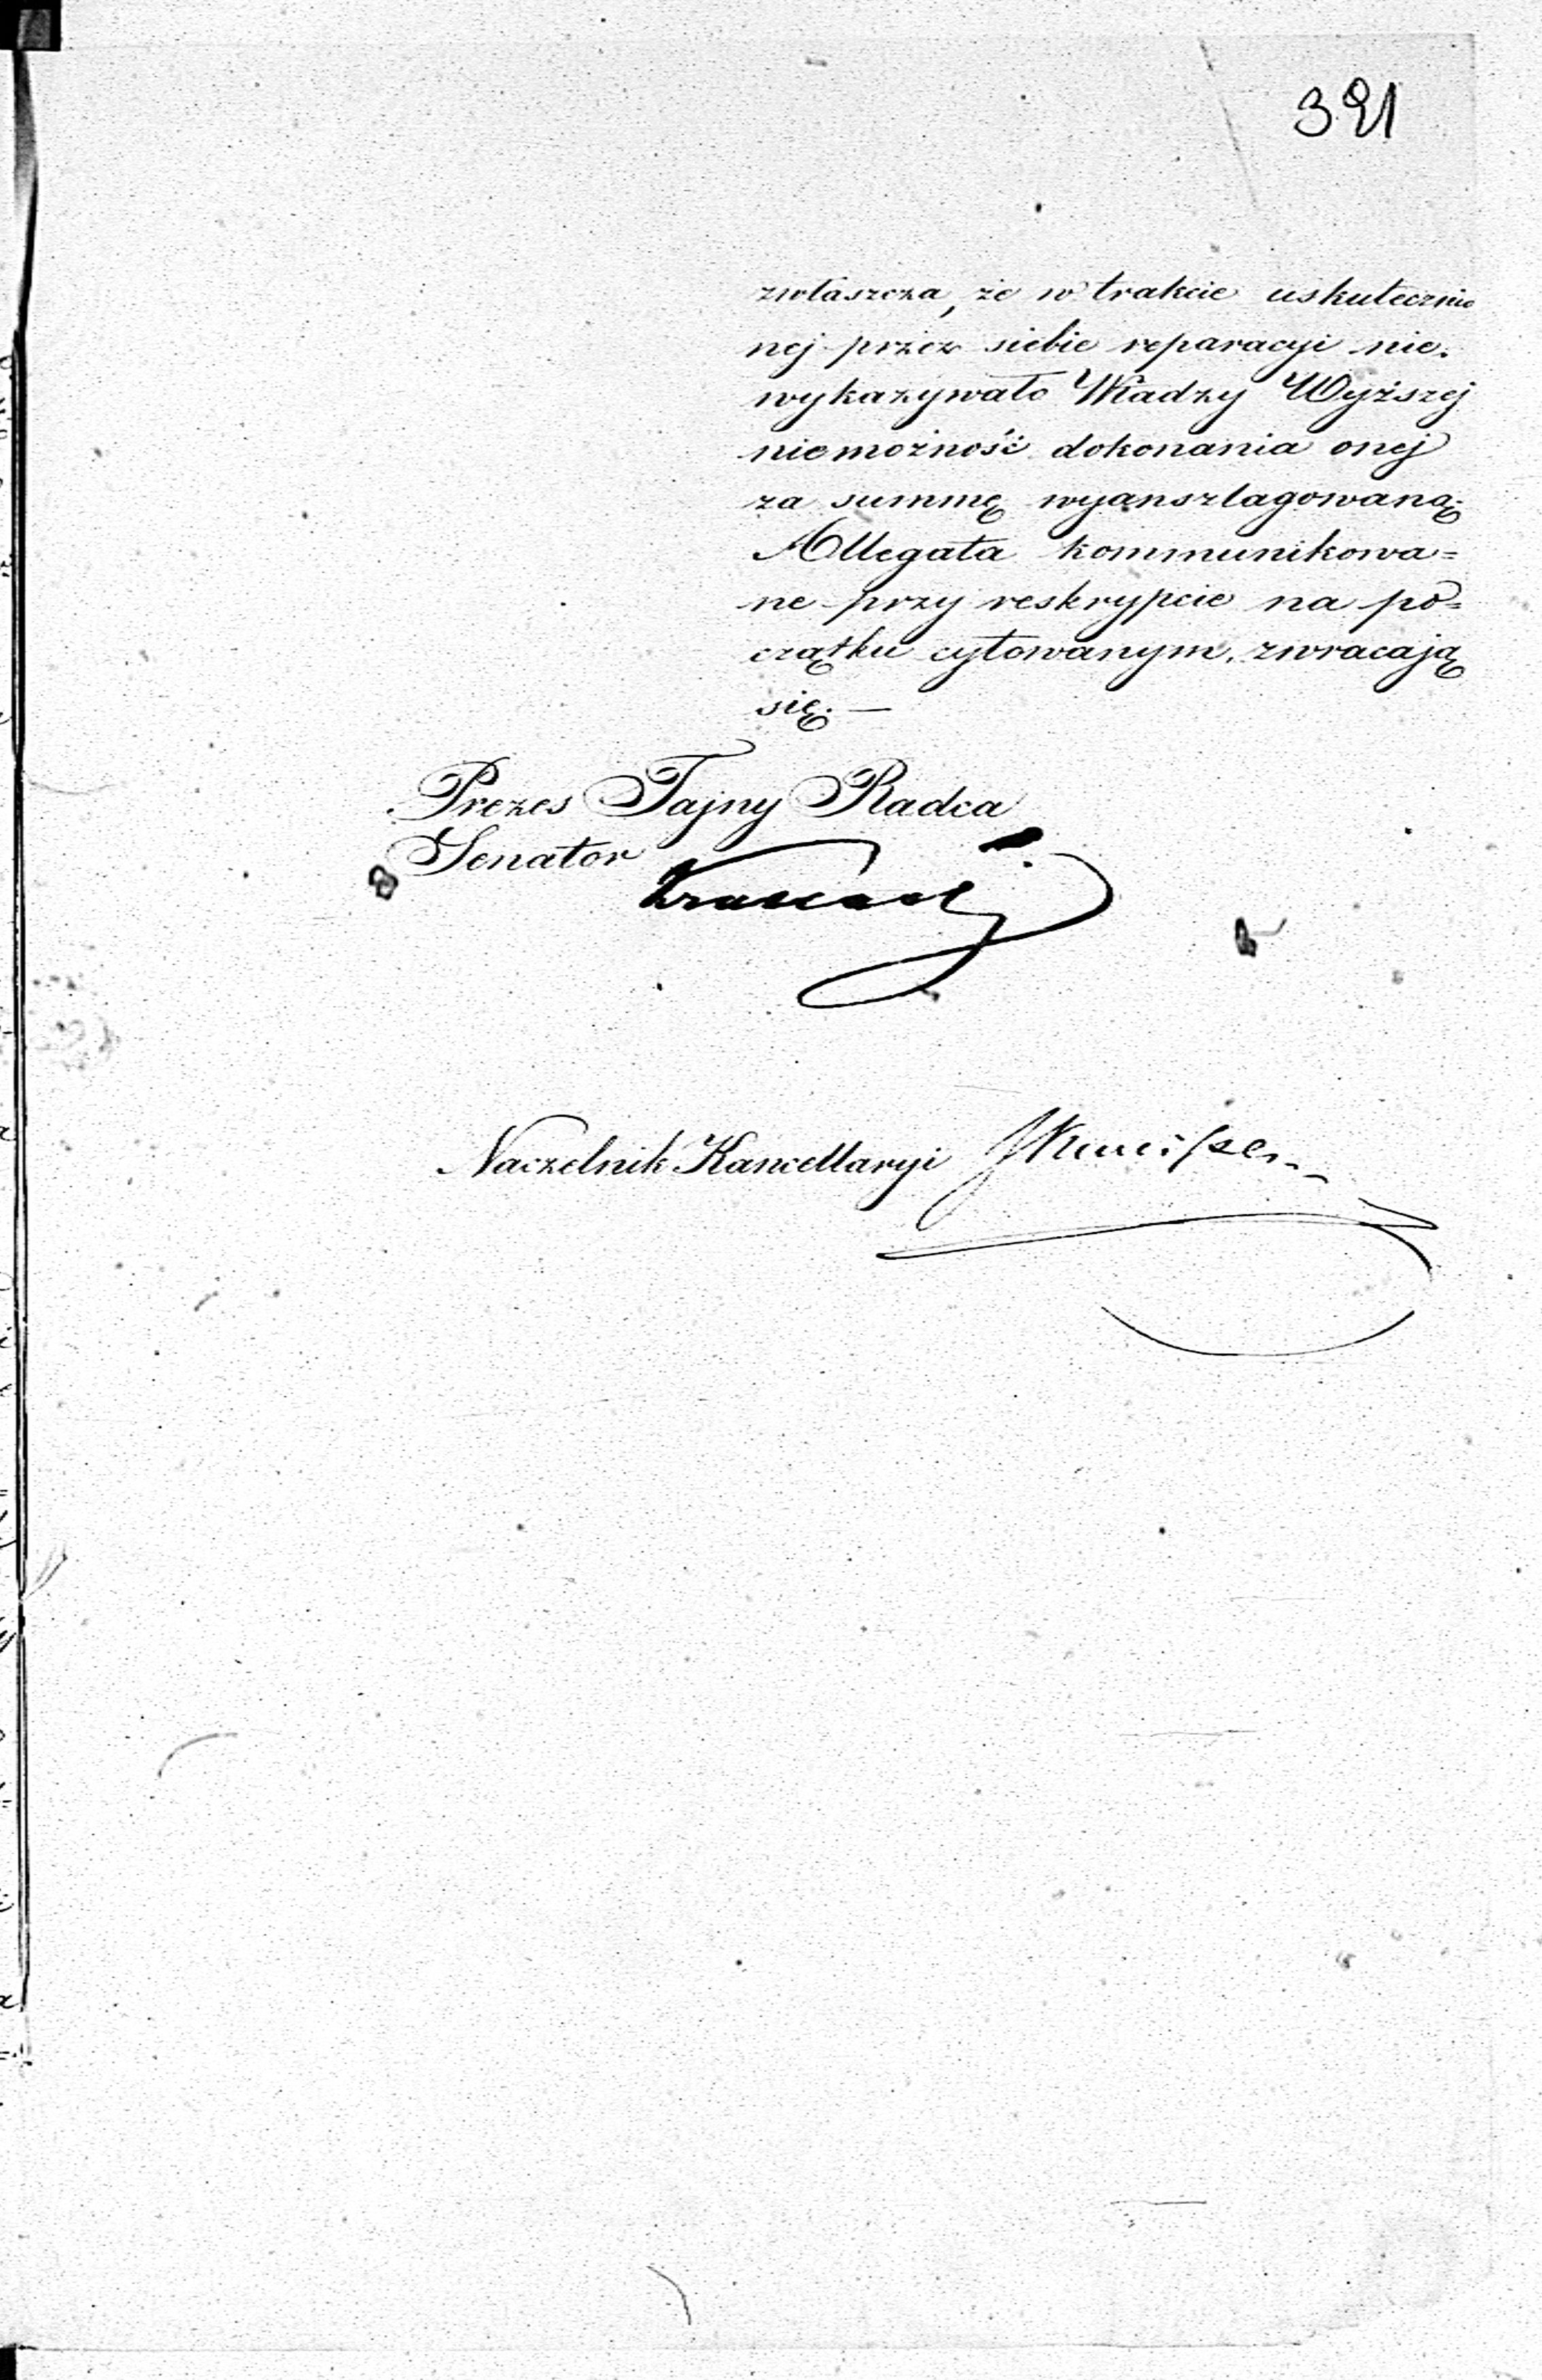 321
zwłaszcza, że w trakcie uskutecznio
nej przez siebie reparacyi nie.
wykazywało Władzy Wyższej
niemożność dokonania onej
za summę wyanszlagowaną.
Allegata kommunikowa=
ne przy reskrypcie na po=
czątku cytowanym, zwracają
się. —
Prezes Tajny Radca
Senator
Naczelnik Kancellaryi